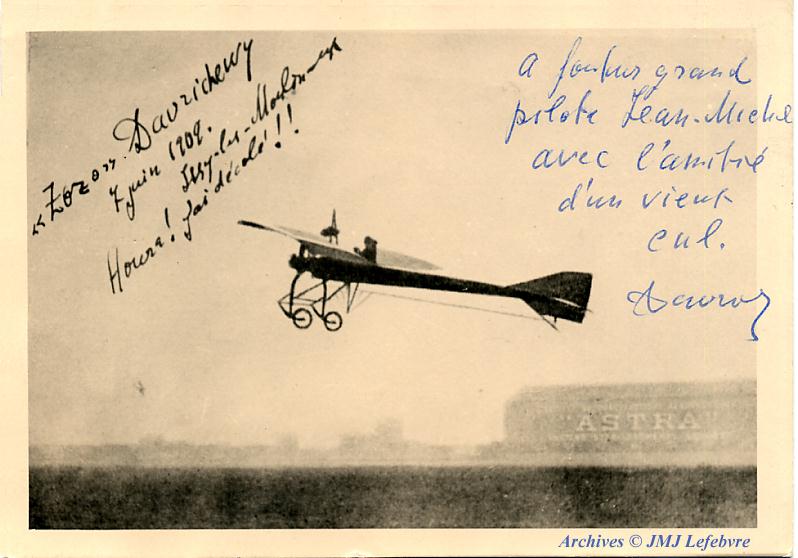 "Zozo" Davrichewy
7 juin 1909.
Issy-les-Moulineaux
Houra! J'ai décolé!!
A grand
pilote Jean-Miche
avec l'amitié
d'un vieux
cul.
ASTRA
Archives © JMJ Lefebvre